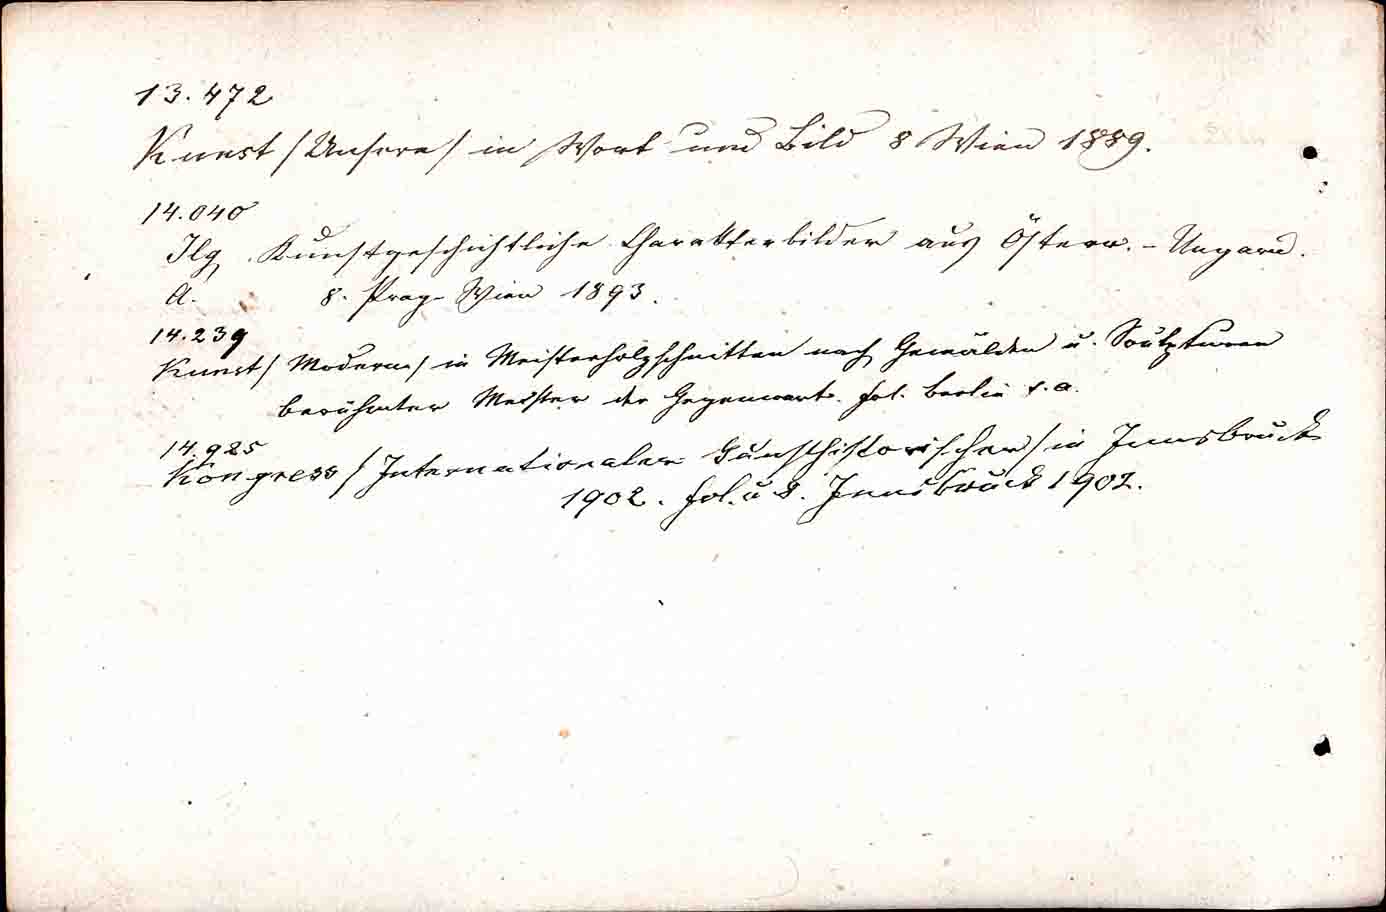 13.472
Kunst /Unsere/ in Wort und Bild 8 Wien 1889.
14.040
Ilg Kunstgeschichtliche Charakterbilder aus Österr.-Ungarn.
A. 8. Prag-Wien 1893.
14.239
Kunst/ Moderne/ in Meisterholzschnitten nach Gemälden u. Sculpturen
berühmter Meister der Gegenwart. fol. Berlin s. a.
14.925
Kongress /Internationaler Kunsthistorischer/ in Innsbruck
1902. fol. u 8. Innsbruck 1902.